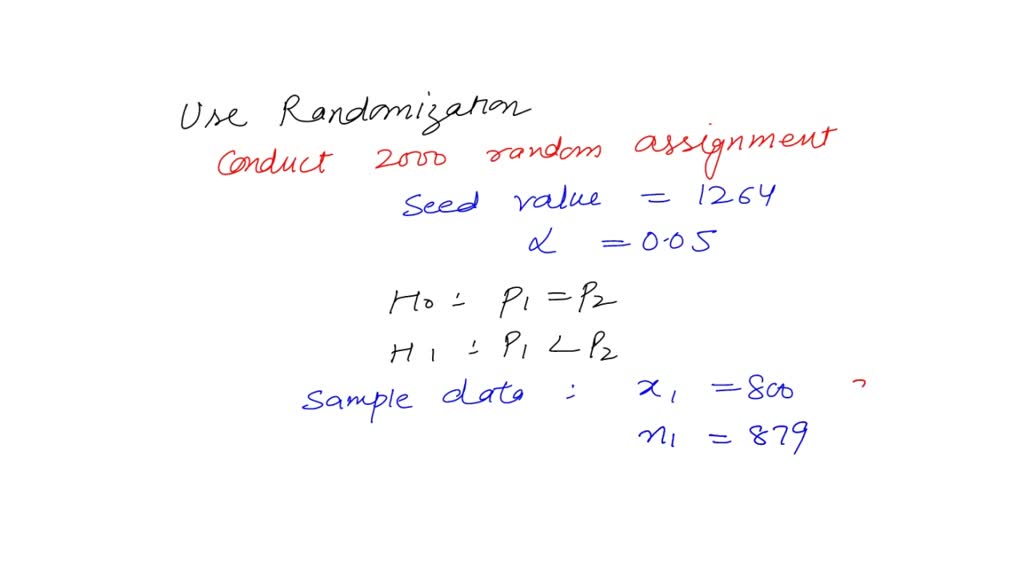 Use Randomization
Conduct 2000 random assignment
Seed value = 1264
α = 0.05
H0 : P1 = P2
H1 : P1 < P2
Sample data : x1 = 800
n1 = 879